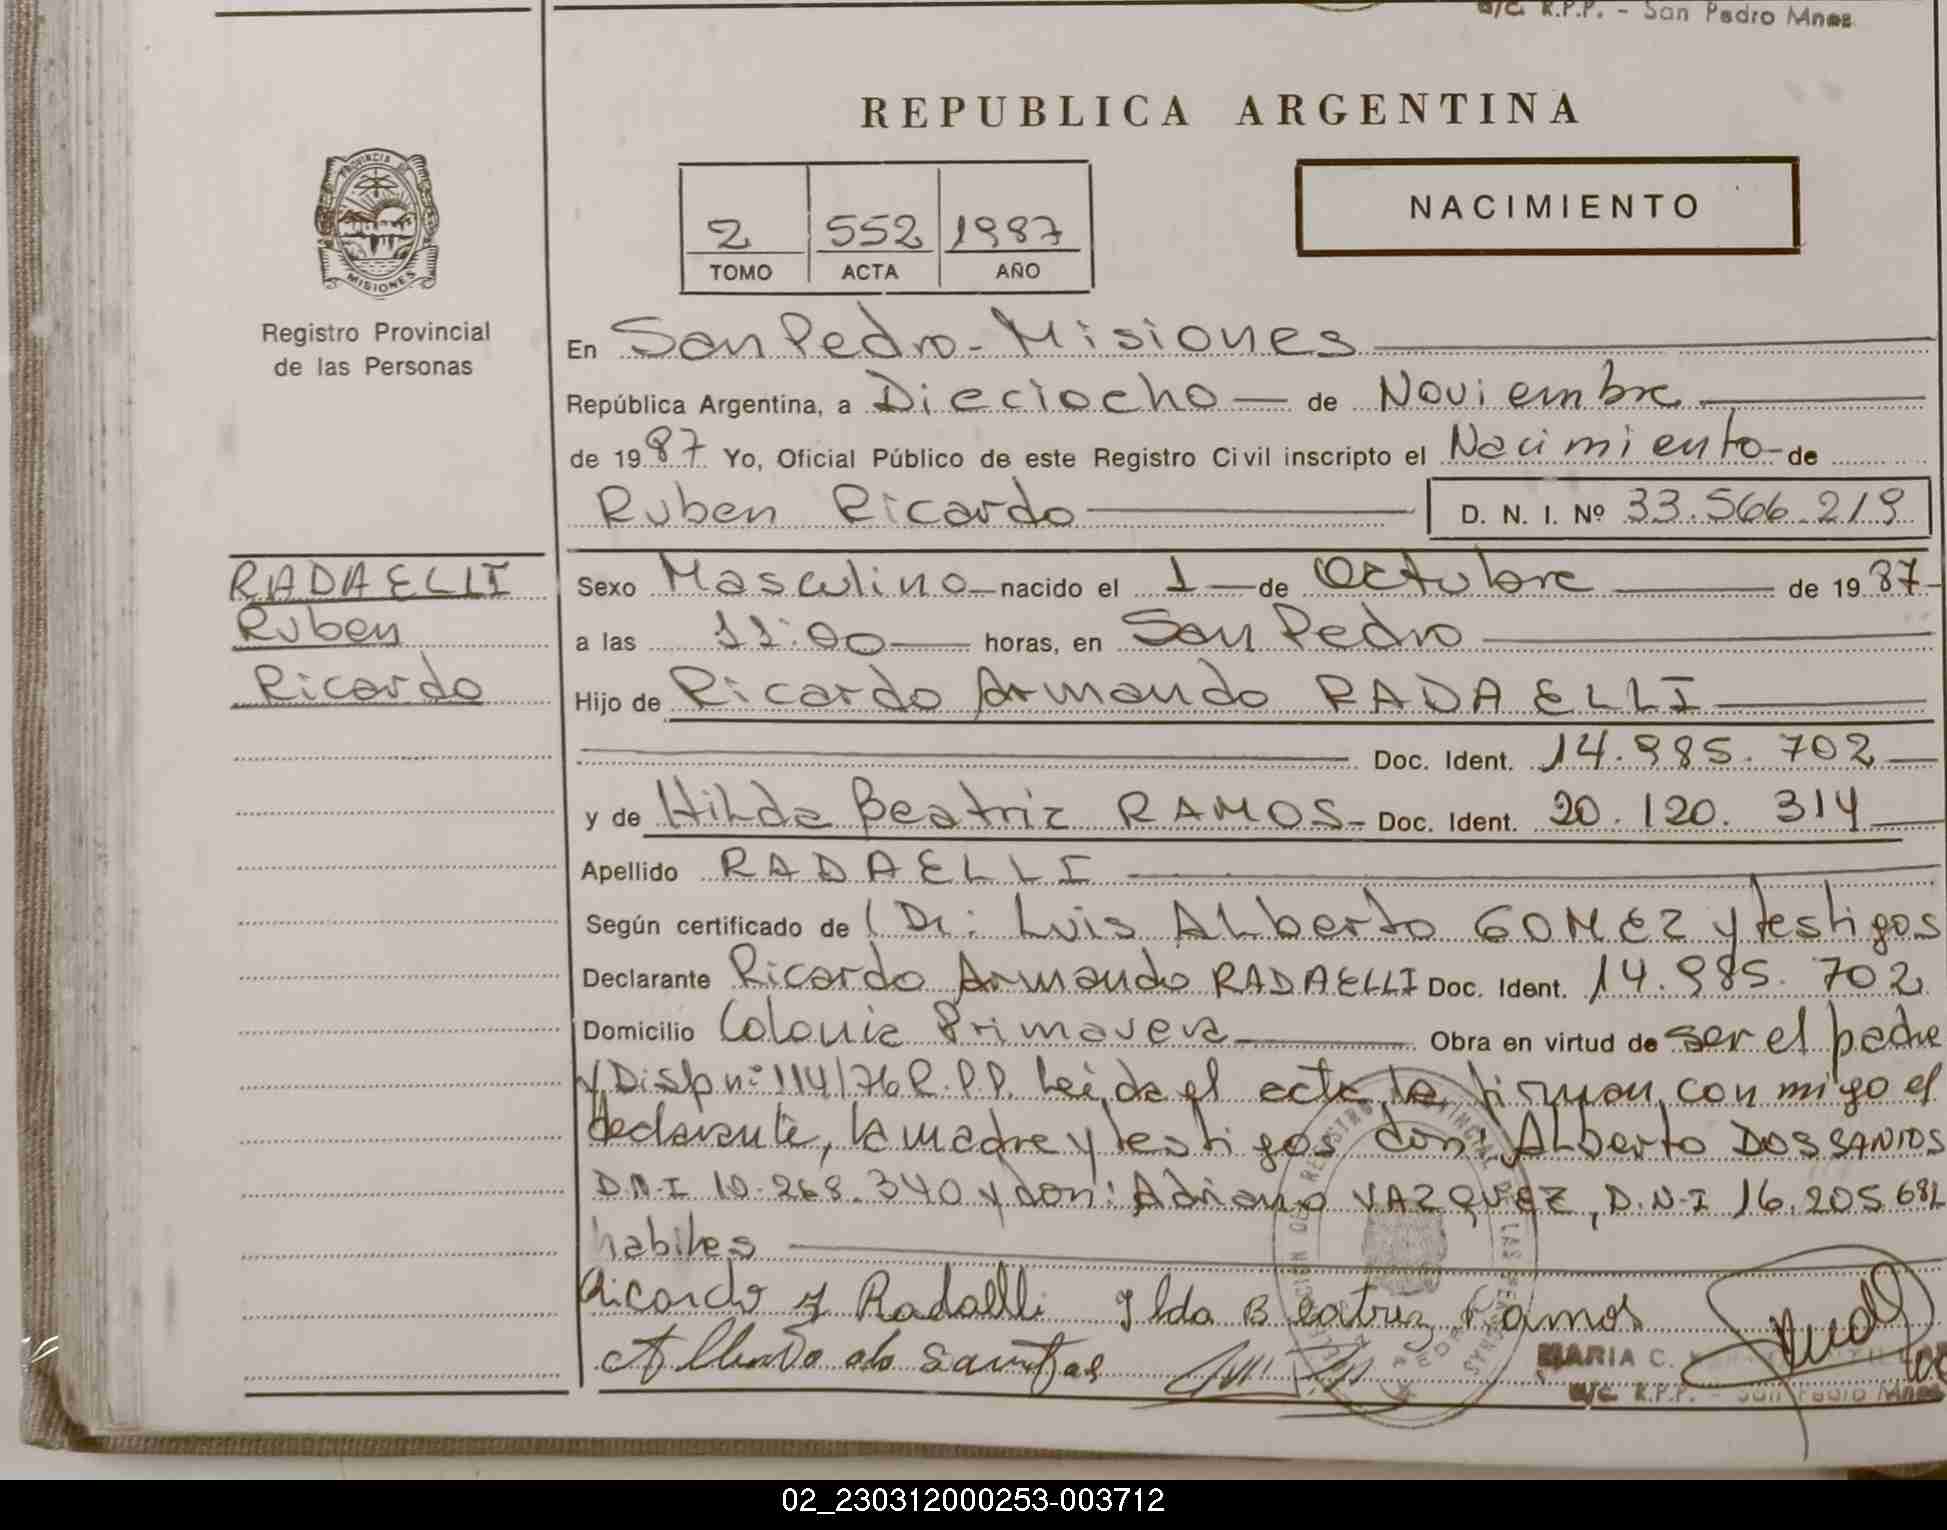 a/c. R.P.P. - San Pedro Mnes.
REPUBLICA ARGENTINA
PROVINCIA DE MISIONES
2 552 1987
TOMO ACTA AÑO
NACIMIENTO
Registro Provincial
de las Personas
En San Pedro - Misiones
República Argentina, a Dieciocho de Noviembre
de 1987 Yo, Oficial Público de este Registro Civil inscripto el Nacimiento de
Ruben Ricardo D. N. I. Nº 33.566.219
RADAELLI
Ruben
Ricardo
Sexo Masculino nacido el 1 de Octubre de 1987
a las 11:00 horas, en San Pedro
Hijo de Ricardo Armando RADAELLI
Doc. Ident. 14.985.702
y de Hilda Beatriz RAMOS Doc. Ident. 20.120.314
Apellido RADAELLI
Según certificado de Dr: Luis ALberto GOMEZ y testigos
Declarante Ricardo Armando RADAELLI Doc. Ident. 14.985.702
Domicilio Colonia Primavera Obra en virtud de ser el padre
y Disp nº 114/76 R.P.P. Leida el acta la firman con migo el
declarante, la madre y testigos don: ALberto DOS SANTOS
D.N.I 10.268.340 y don: Adriano VAZQUEZ, D.N.I 16.205.681
habiles
Ricardo A Radaelli Ilda Beatriz Ramos
Alberto do Santos
MARIA C.
a/c. R.P.P. - San Pedro Mnes.
02_230312000253-003712